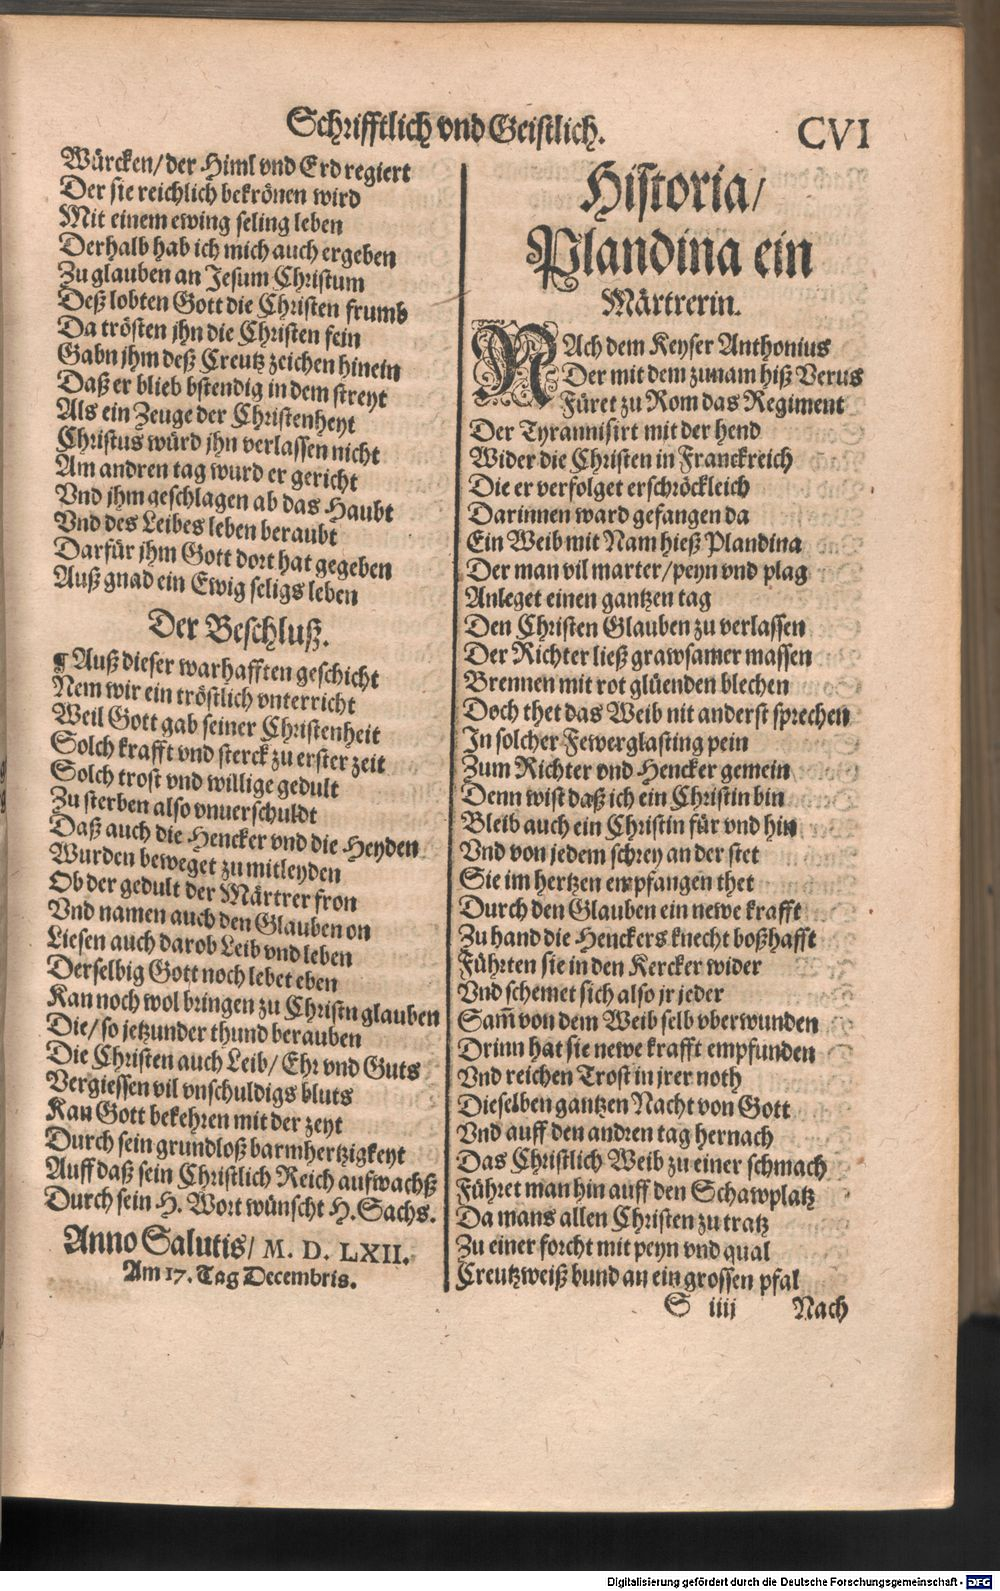 Schrifftlich vnd Geistlich. CVI
Würcken/ der Himl vnd Erd regiert
Der sie reichlich bekrönen wird
Mit einem ewing seling leben
Derhalb hab ich mich auch ergeben
Zu glauben an Jesum Christum
Deß lobten Gott die Christen frumb
Da trösten jhn die Christen fein
Gabn jhm deß Creutz zeichen hinein
Daß er blieb bstendig in dem streyt
Als ein Zeuge der Christenheyt
Christus würd jhn verlassen nicht
Am andren tag wurd er gericht
Vnd jhm geschlagen ab das Haubt
Vnd des Leibes leben beraubt
Darfür jhm Gott dort hat gegeben
Auß gnad ein Ewig seligs leben
Der Beschluß.
¶ Auß dieser warhafften geschicht
Nem wir ein tröstlich vnterricht
Weil Gott gab seiner Christenheit
Solch krafft vnd sterck zu erster zeit
Solch trost vnd willige gedult
Zu sterben also vnuerschuldt
Daß auch die Hencker vnd die Heyden
Wurden beweget zu mitleyden
Ob der gedult der Märtrer fron
Vnd namen auch den Glauben on
Liesen auch darob Leib vnd leben
Derselbig Gott noch lebet eben
Kan noch wol bringen zu Christn glauben
Die/ so jetzunder thund berauben
Die Christen auch Leib/ Ehr vnd Guts
Vergiessen vil vnschuldigs bluts
Kan Gott bekehren mit der zeyt
Durch sein grundloß barmhertzigkeyt
Auff daß sein Christlich Reich aufwachß
Durch sein H. Wort wünscht H. Sachs.
Anno Salutis/ M. D. LXII.
Am 17. Tag Decembris.
Historia/
Plandina ein
Märtrerin.
NAch dem Keyser Anthonius
Der mit dem zunam hiß Verus
Füret zu Rom das Regiment
Der Tyrannisirt mit der hend
Wider die Christen in Franckreich
Die er verfolget erschröckleich
Darinnen ward gefangen da
Ein Weib mit Nam hieß Plandina
Der man vil marter/ peyn vnd plag
Anleget einen gantzen tag
Den Christen Glauben zu verlassen
Der Richter ließ grawsamer massen
Brennen mit rot glüenden blechen
Doch thet das Weib nit anderst sprechen
In solcher Fewerglasting pein
Zum Richter vnd Hencker gemein
Denn wist daß ich ein Christin bin
Bleib auch ein Christin für vnd hin
Vnd von jedem schrey an der stet
Sie im hertzen empfangen thet
Durch den Glauben ein newe krafft
Zu hand die Henckers knecht boßhafft
Führten sie in den Kercker wider
Vnd schemet sich also jr jeder
Sam̃ von dem Weib selb vberwunden
Drinn hat sie newe krafft empfunden
Vnd reichen Trost in jrer noth
Dieselben gantzen Nacht von Gott
Vnd auff den andren tag hernach
Das Christlich Weib zu einer schmach
Führet man hin auff den Schawplatz
Da mans allen Christen zu tratz
Zu einer forcht mit peyn vnd qual
Creutzweiß bund an ein grossen pfal
S iiij Nach
Digitalisierung gefördert durch die Deutsche Forschungsgemeinschaft - DFG